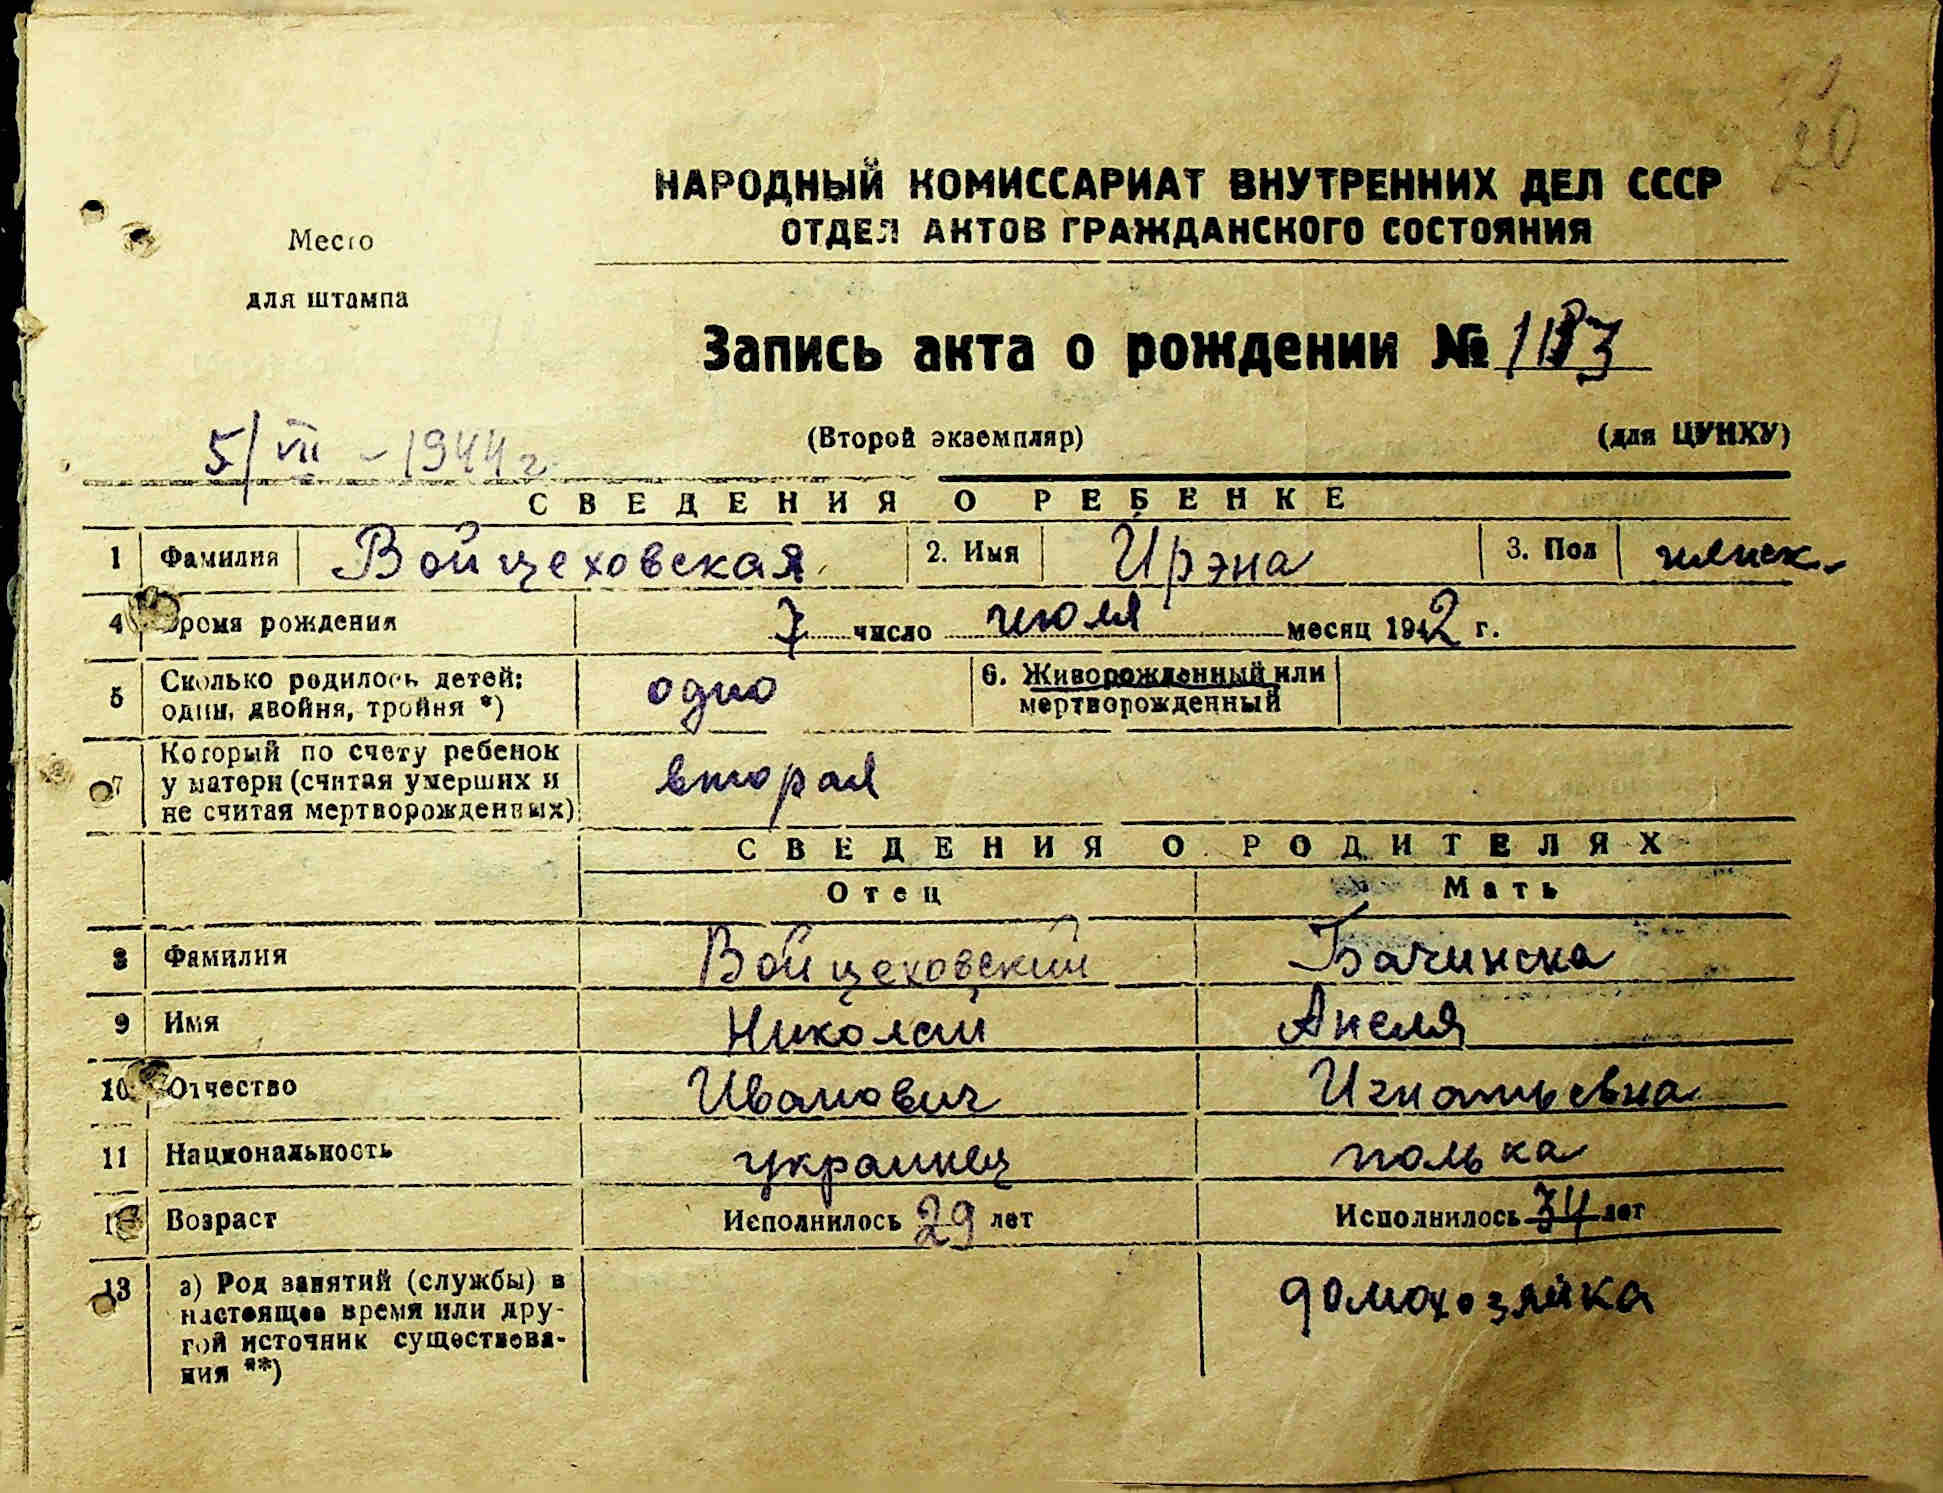 20
НАРОДНЫЙ КОМИССАРИАТ ВНУТРЕННИХ ДЕЛ СССР
ОТДЕЛ АКТОВ ГРАЖДАНСКОГО СОСТОЯНИЯ
Место
для штампа
Запись акта о рождении №
5/VII - 1944 г.
(Второй экземпляр) (для ЦУНХУ)
СВЕДЕНИЯ О РЕБЕНКЕ
1 Фамилия Войцеховская 2. Имя Ирэна 3. Пол
4 Время рождения 7 число июля месяц 1942 г.
5 Сколько родилось детей: один, двойня, тройня *) одно 6. Живорожденный или мертворожденный
7 Который по счету ребенок у матери (считая умерших и не считая мертворожденных) вторая
СВЕДЕНИЯ О РОДИТЕЛЯХ
Отец Мать
8 Фамилия Войцеховский Бачинска
9 Имя Николай Анеля
10 Отчество Иванович Игнатьевна
11 Национальность украинец полька
12 Возраст Исполнилось 29 лет Исполнилось 34 лет
13 а) Род занятий (службы) в домохозяйка
настоящее время или дру-
гой источник существова-
ния **)